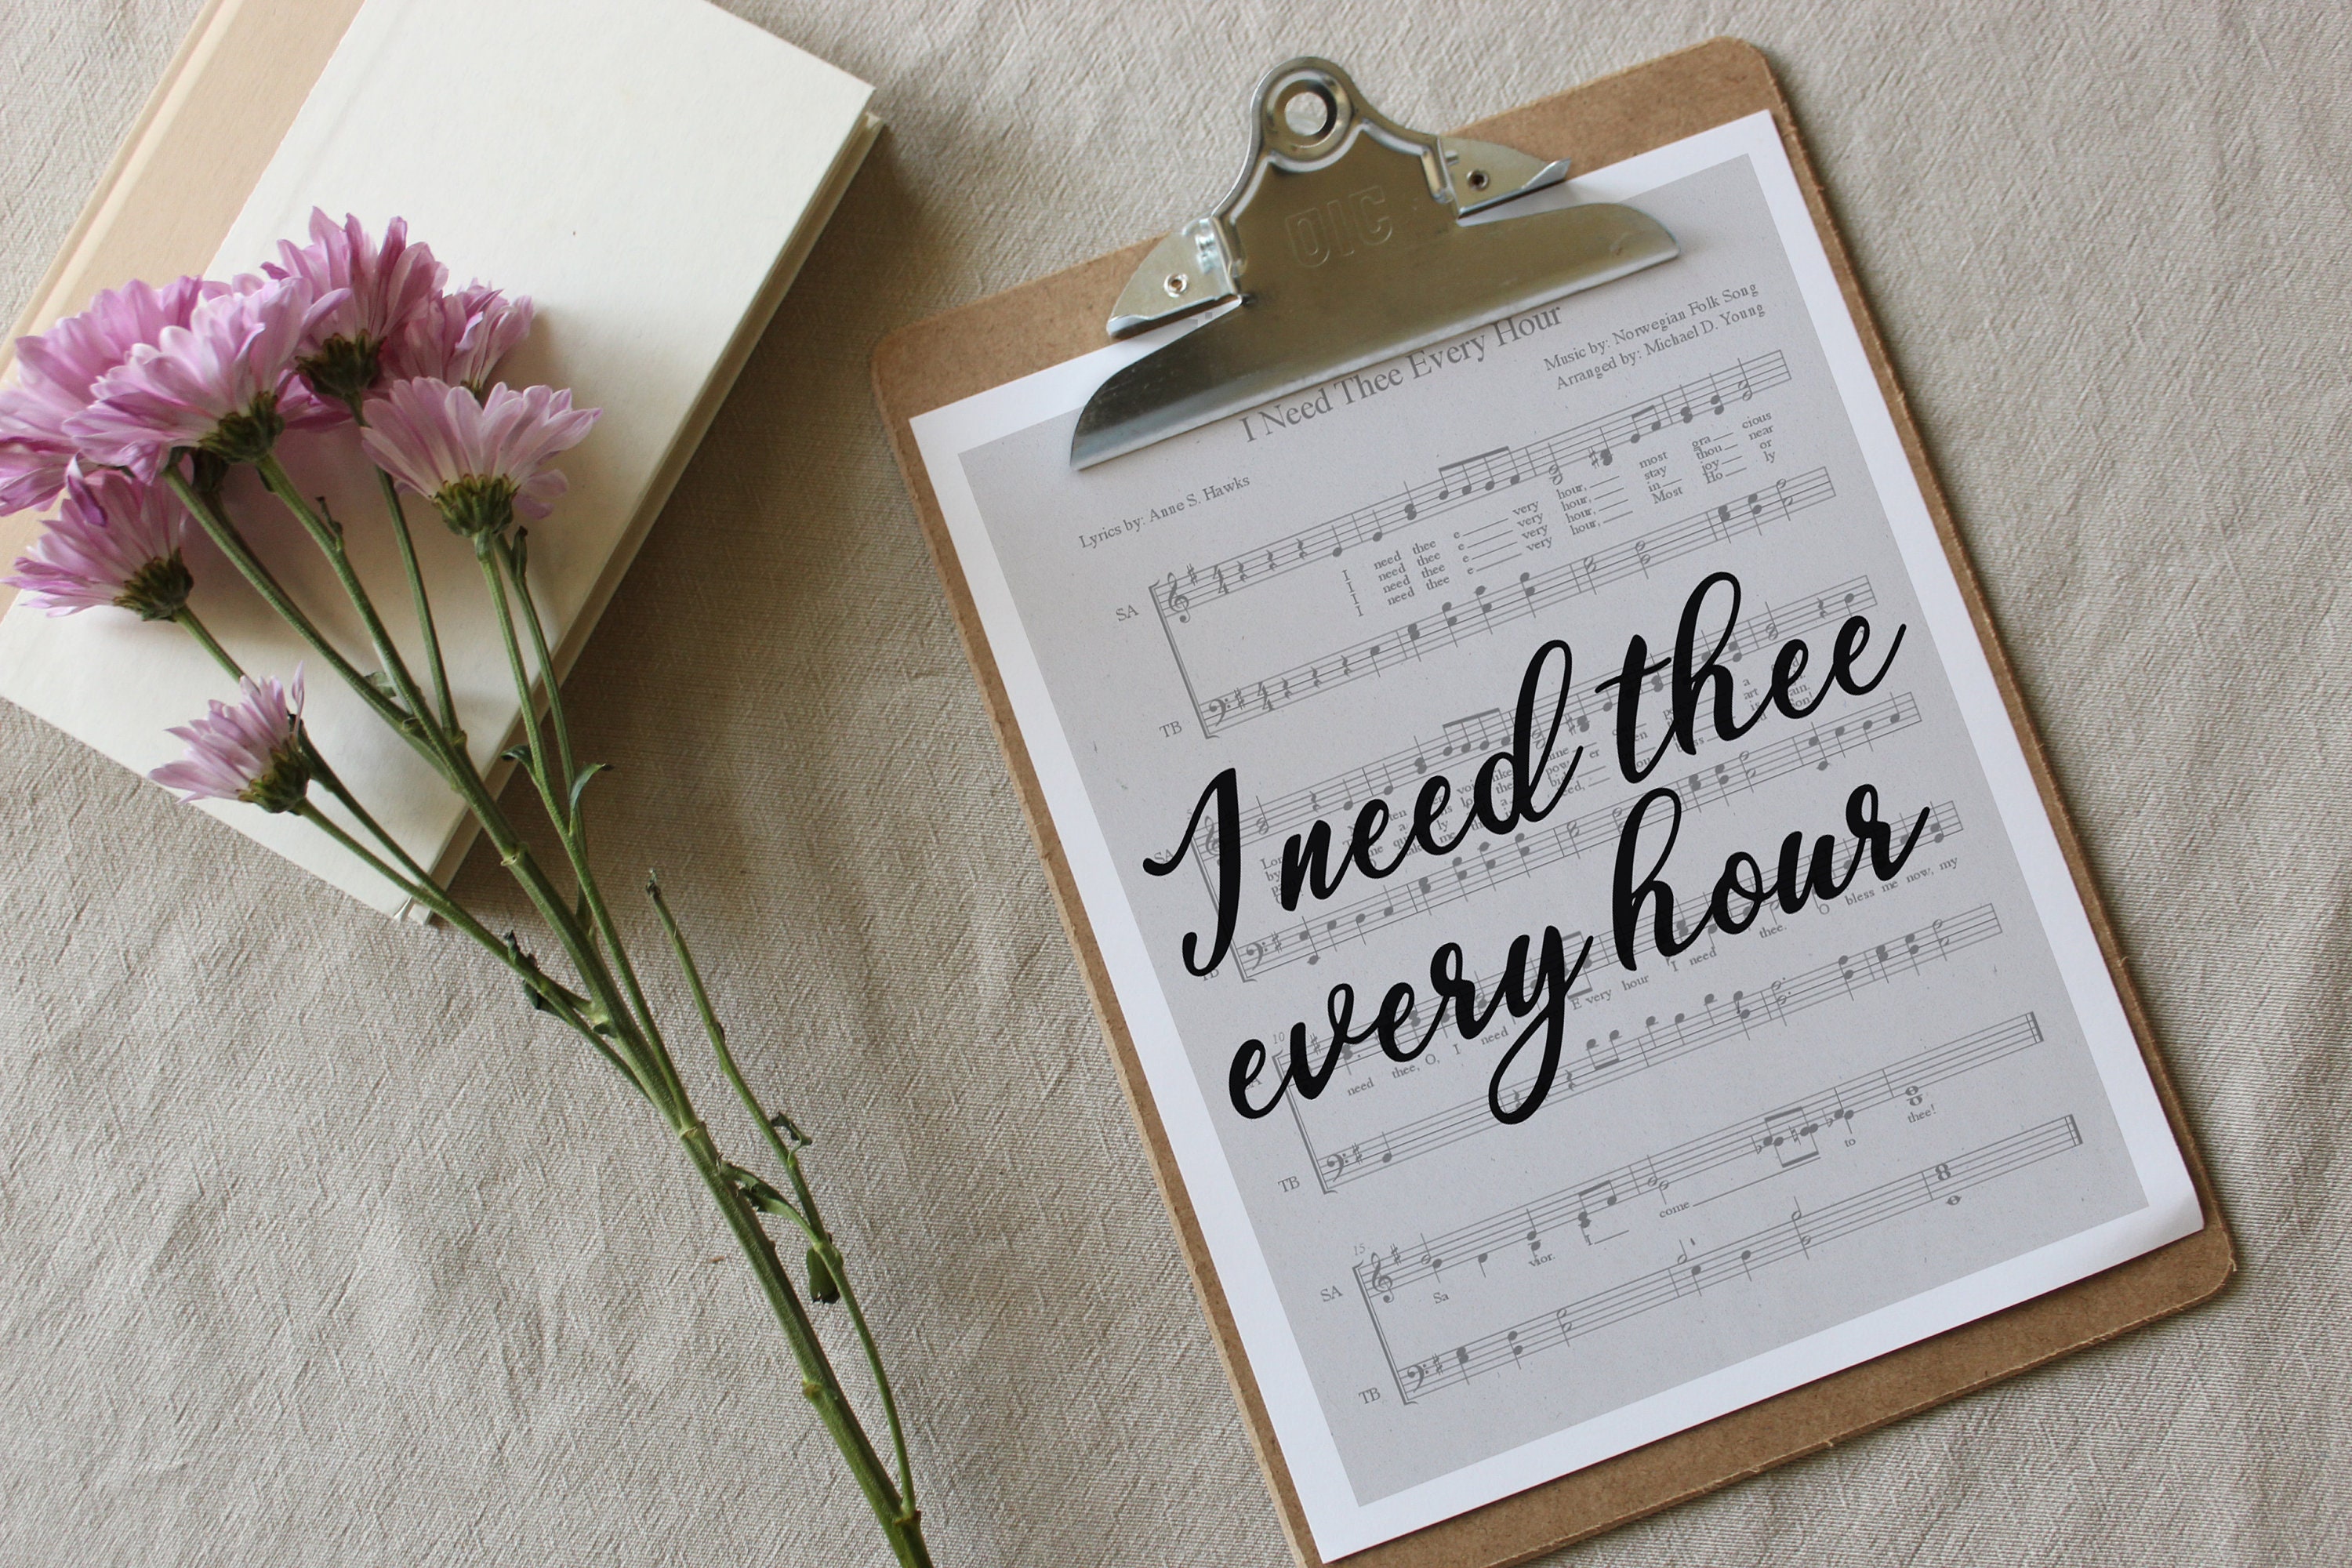 OIC
I Need Thee Every Hour
Music by: Norwegian Folk Song
Arranged by: Michael D. Young
Lyrics by: Anne S. Hawks
SA
I need thee e very hour, most gra cious
I need thee e very hour, stay thou near
I need thee e very hour, in joy or
I need thee e very hour, Most Ho ly
TB
I need thee
every hour
thee. O bless me now, my
need thee, O, I need E very hour I need
TB
15
SA
Sa vior. I come to thee!
TB